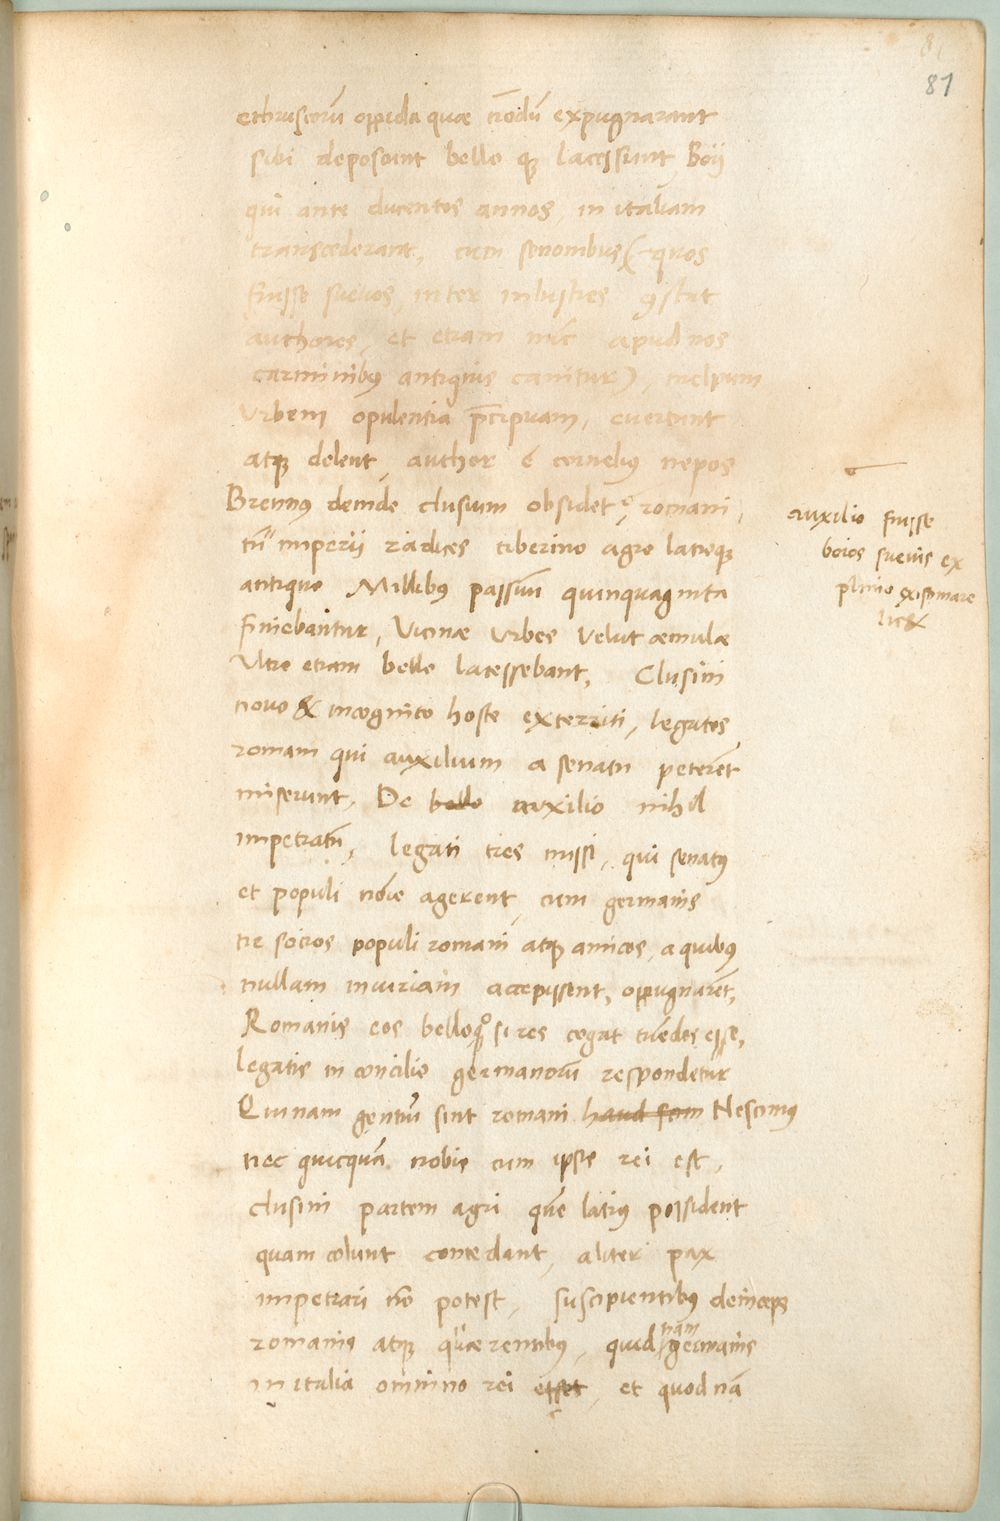 81
87
ethruscorũ oppida quae nõdũ expugnarant
sibi deposcunt bello q3 lacessunt, Boij
qui ante ducentos annos, in italiam
transcederant, cum senonibus (quos
fuisse suevos, inter illustres ꝯstat
authores, et etiam nũc apud nos
carminibus antiquis canitur), melpum
urbem opulentia p̃cipuam, evertunt
atq3 delent, author ẽ cornelius nepos
Brennus deinde clusium obsidet, romani,
tũ imperii radices tiberino agro latioq3
antiquo Millibus passuũ quinquaginta
finiebantur, Vicinae urbes velut aemulae
Ultro etiam bello lacessebant, Clusini
novo & incognito hoste exterriti, legatos
romam qui auxilium a senatu peterẽt
miserunt, De bello auxilio nihil
impetratũ, legati tres missi, qui senatus
et populi nõie agerent, cum germanis
ne socios populi romani atq3 amicos, a quibus
nullam iniuriam accepissent, oppugnarẽt,
Romanis eos belloq3 si res cogat tuẽdos esse,
legatis in concilio germanorũ respondetur
Quinam gentiũ sint romani haud sem Nescimus
nec quicquã nobis cum ipsis rei est,
clusini partem agri quẽ latius possident
quam colunt concedant, aliter pax
impetrari nõ potest, suscipientibus deinceps
romanis atq3 quaerentibus, quid nam germanis
in italia omnino rei esset, et quod nã
auxilio fuisse
boios suevis ex
plinio existimare
licet